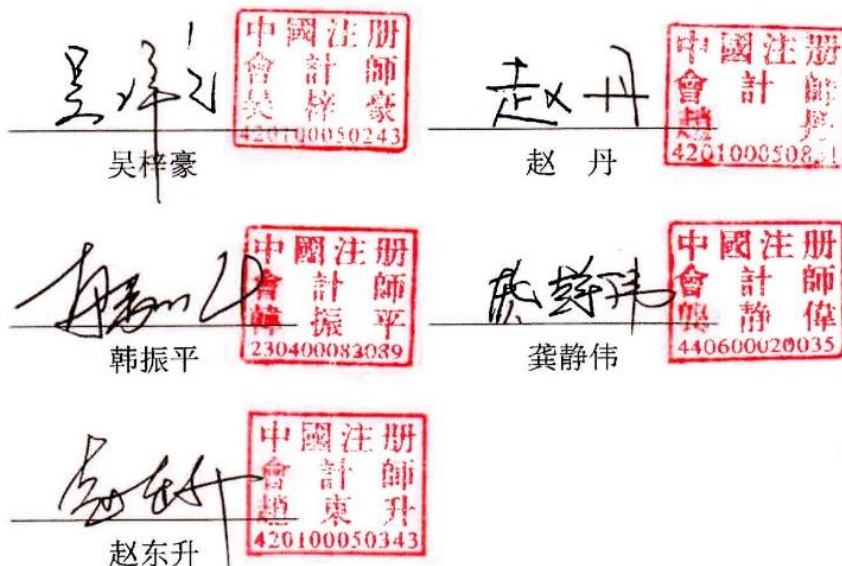 吴梓豪
中國注册
會計師
吴梓豪
420100050243
赵丹
中國注册
會計師
趙丹
吴梓豪
赵 丹
中國注册
會計師
韓振平
230400083089
中國注册
會計師
龔静偉
440600020035
韩振平
龚静伟
中國注册
會計師
趙東升
420100050343
赵东升